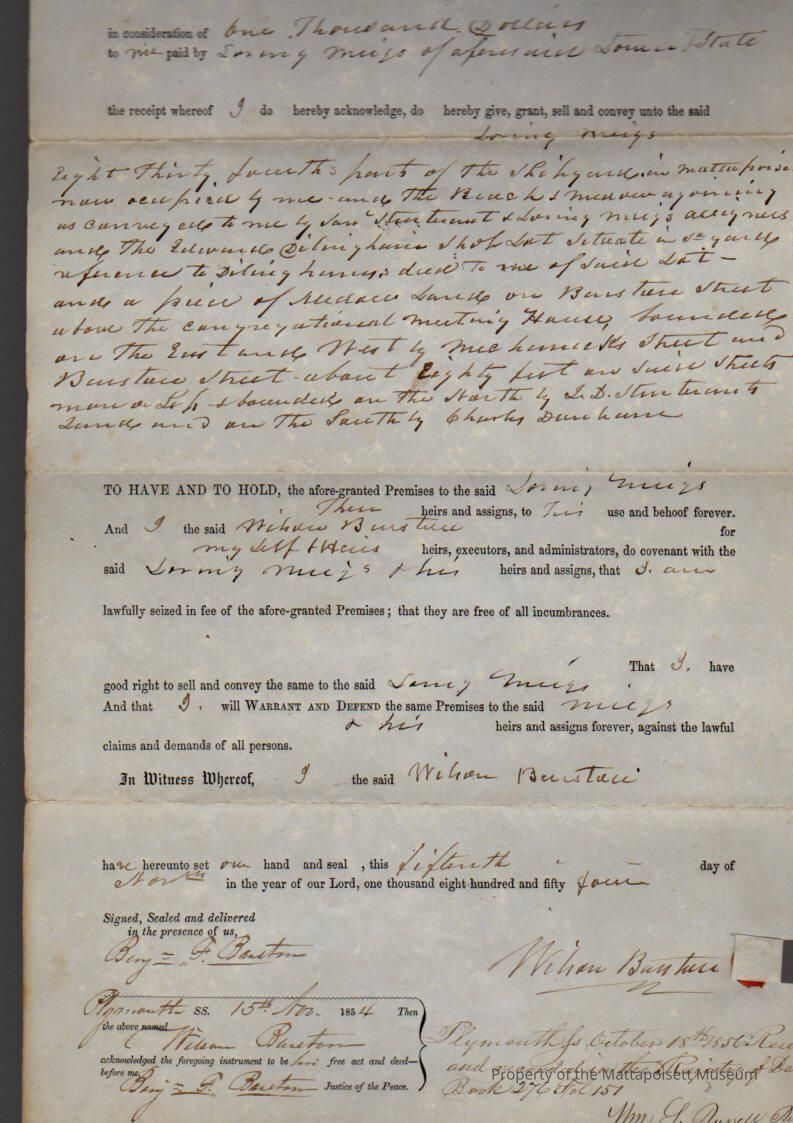 in consideration of One Thousand Dollars
to me paid by Loring Meigs of aforesaid Town & State
the receipt whereof I do hereby acknowledge, do hereby give, grant, sell and convey unto the said
Loring Meigs
Eight Thirty fourths part of the Shipyard in Mattapoise
now ocupied by me and the Beach & medow ajoining
as conveyed to me by Sturtevant & Loring Meigs assignees
and The Edward Dilingham Shop Lot Situate in sd yard
reference to Dilinghams deed to me of said Lot —
and a piece of Medow Land on Barstow Street
above the congregational meeting House, bounded
on The East and West by Mechanicks Street and
Barstow Street about Eighty feet on said Streets
more or Less & bounded on the North by Sturtevants
Land and on The South by Charles Dunham
TO HAVE AND TO HOLD, the afore-granted Premises to the said Loring Meigs
heirs and assigns, to his use and behoof forever.
And I the said Wilson Barstow for
my Self & Heirs heirs, executors, and administrators, do covenant with the
said Loring Meigs & his heirs and assigns, that I am
lawfully seized in fee of the afore-granted Premises; that they are free of all incumbrances.
That I. have
good right to sell and convey the same to the said Loring Meigs
And that I. will WARRANT AND DEFEND the same Premises to the said Meigs
& his heirs and assigns forever, against the lawful
claims and demands of all persons.
In Witness Whereof, I the said Wilson Barstow
have hereunto set our hand and seal , this fifteenth day of
in the year of our Lord, one thousand eight hundred and fifty four
Signed, Sealed and delivered
in the presence of us,
Benj= F. Barstow
Wilson Barstow
Plymouth SS. 15th Nov. 1854 Then
the above named
Wilson Barstow
acknowledged the foregoing instrument to be his free act and deed—
before me,
Benj= F. Barstow Justice of the Peace.
Plymouth ss. October 18th 1856. Rece
and recorded in the Registry of De
Book 276 Fol 151
Wm S. Russell
Property of the Mattapoisett Museum